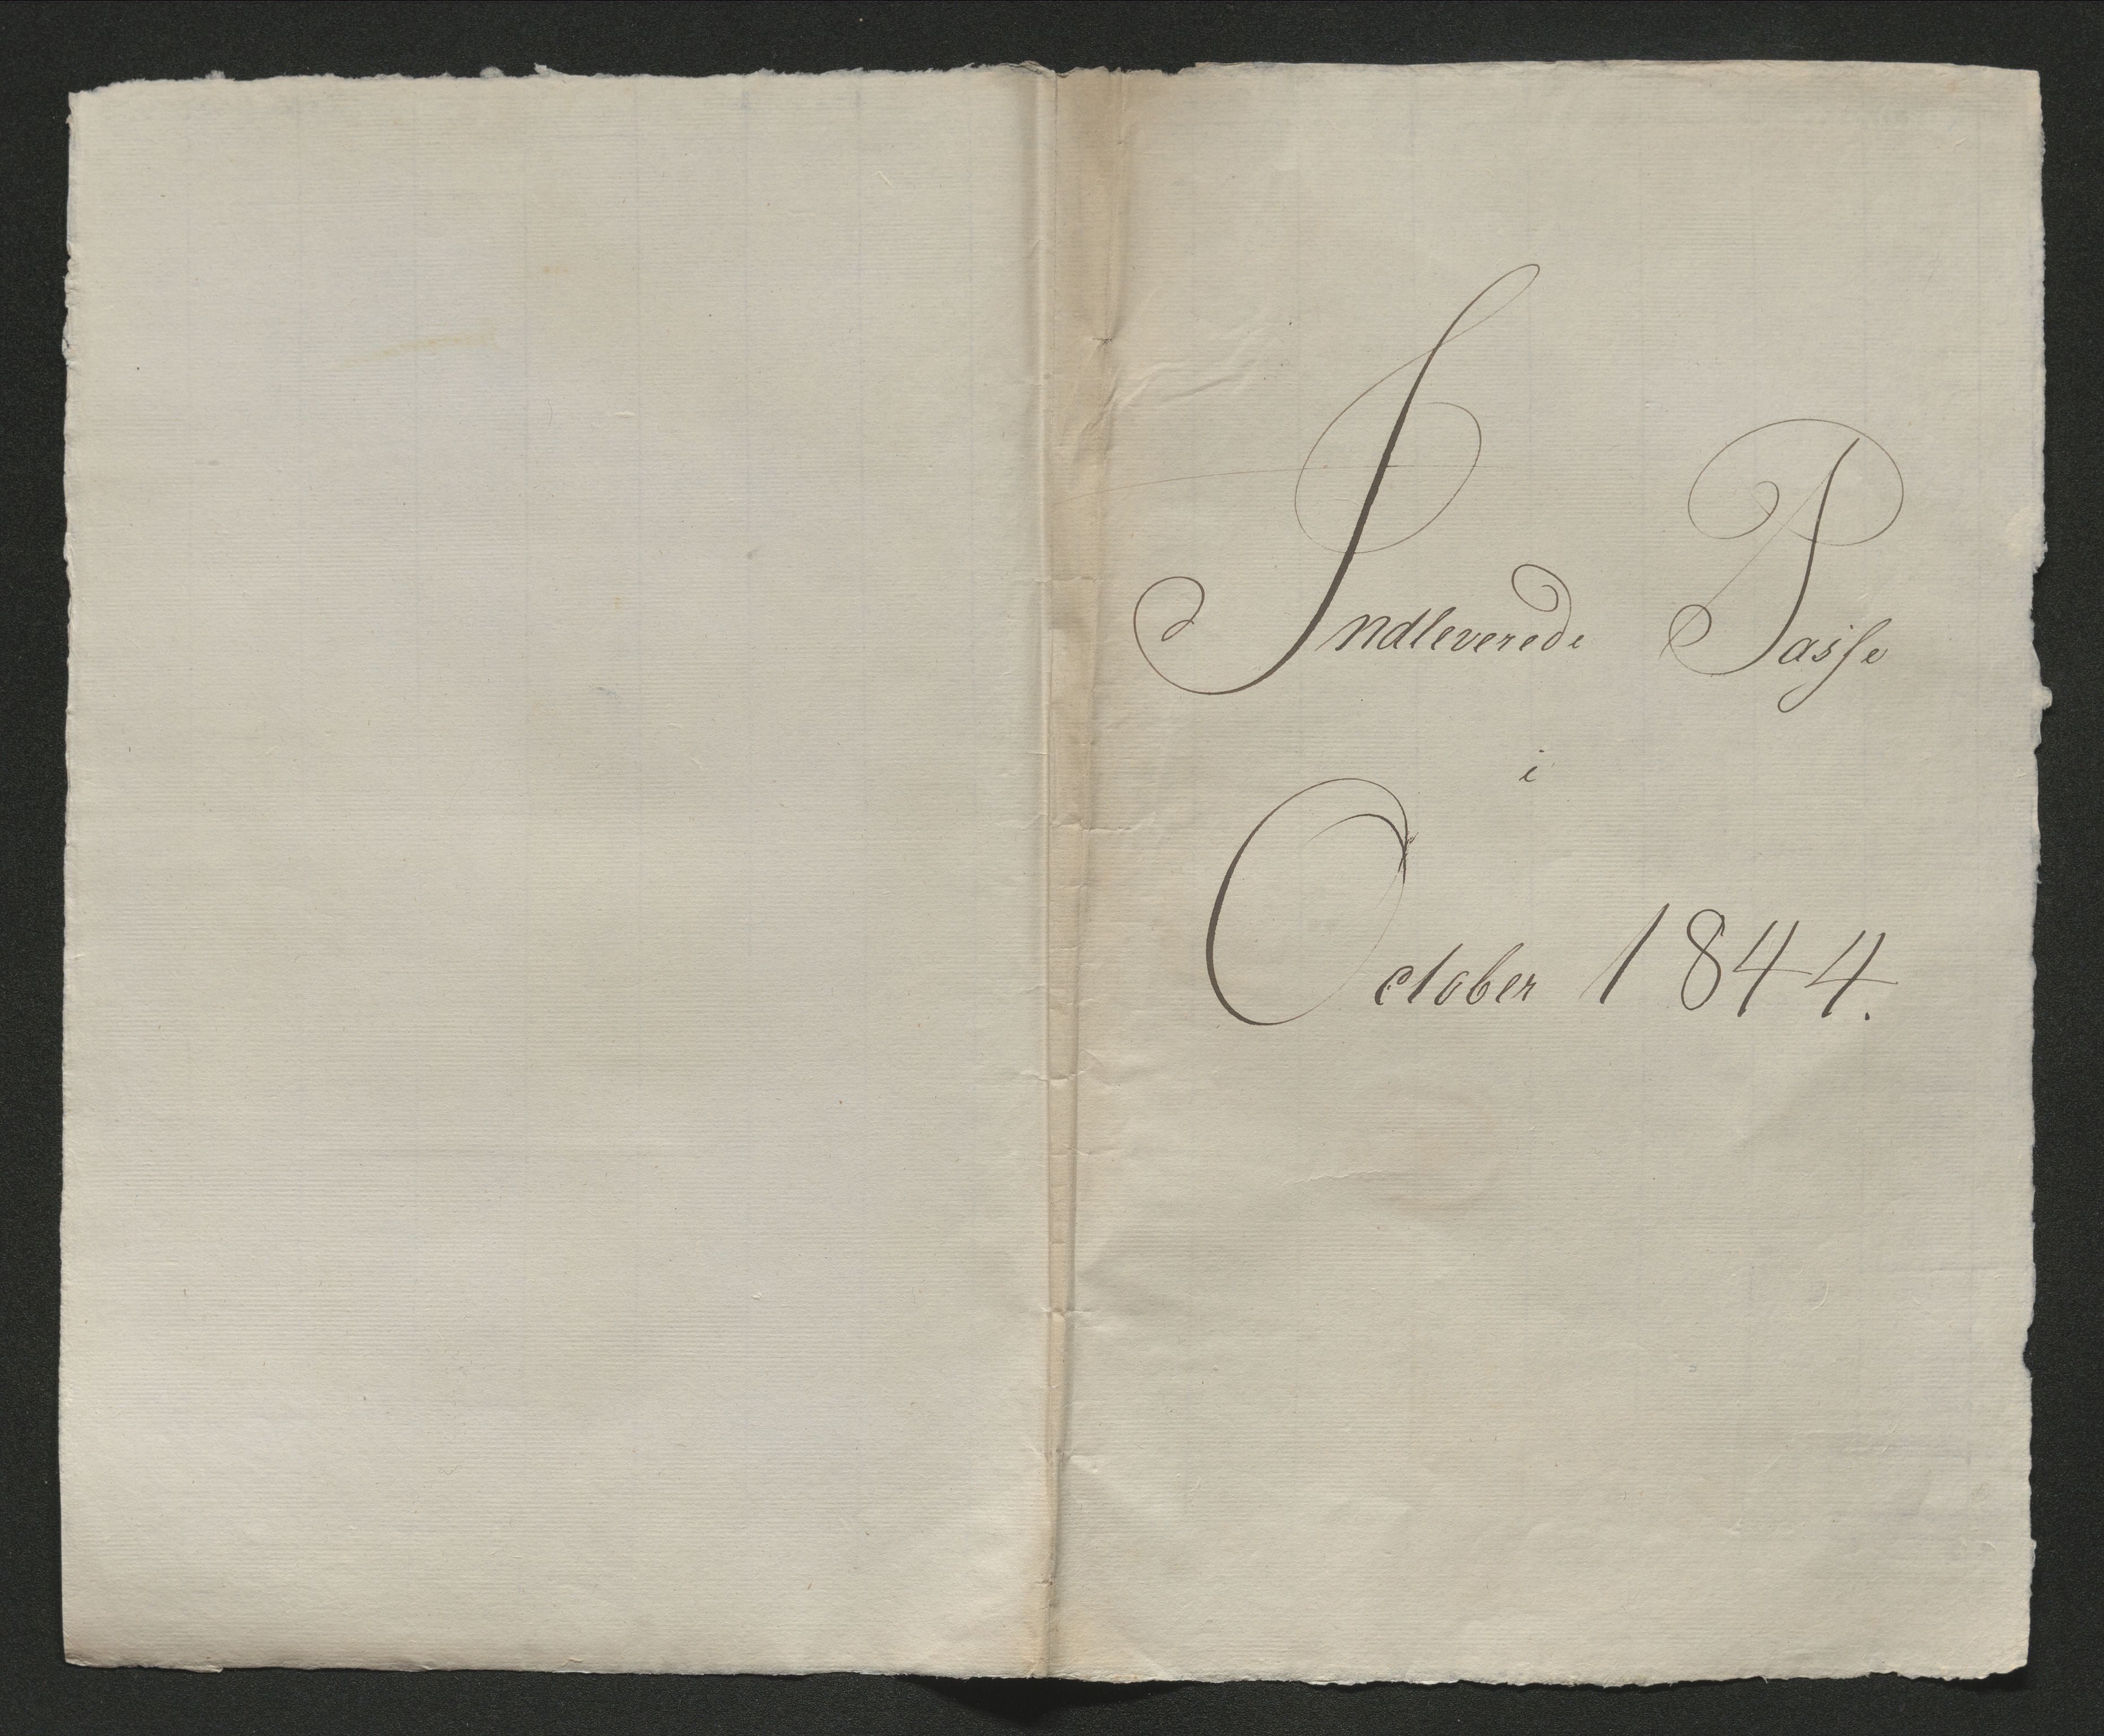 Indleverede Passe
i
October 1844.